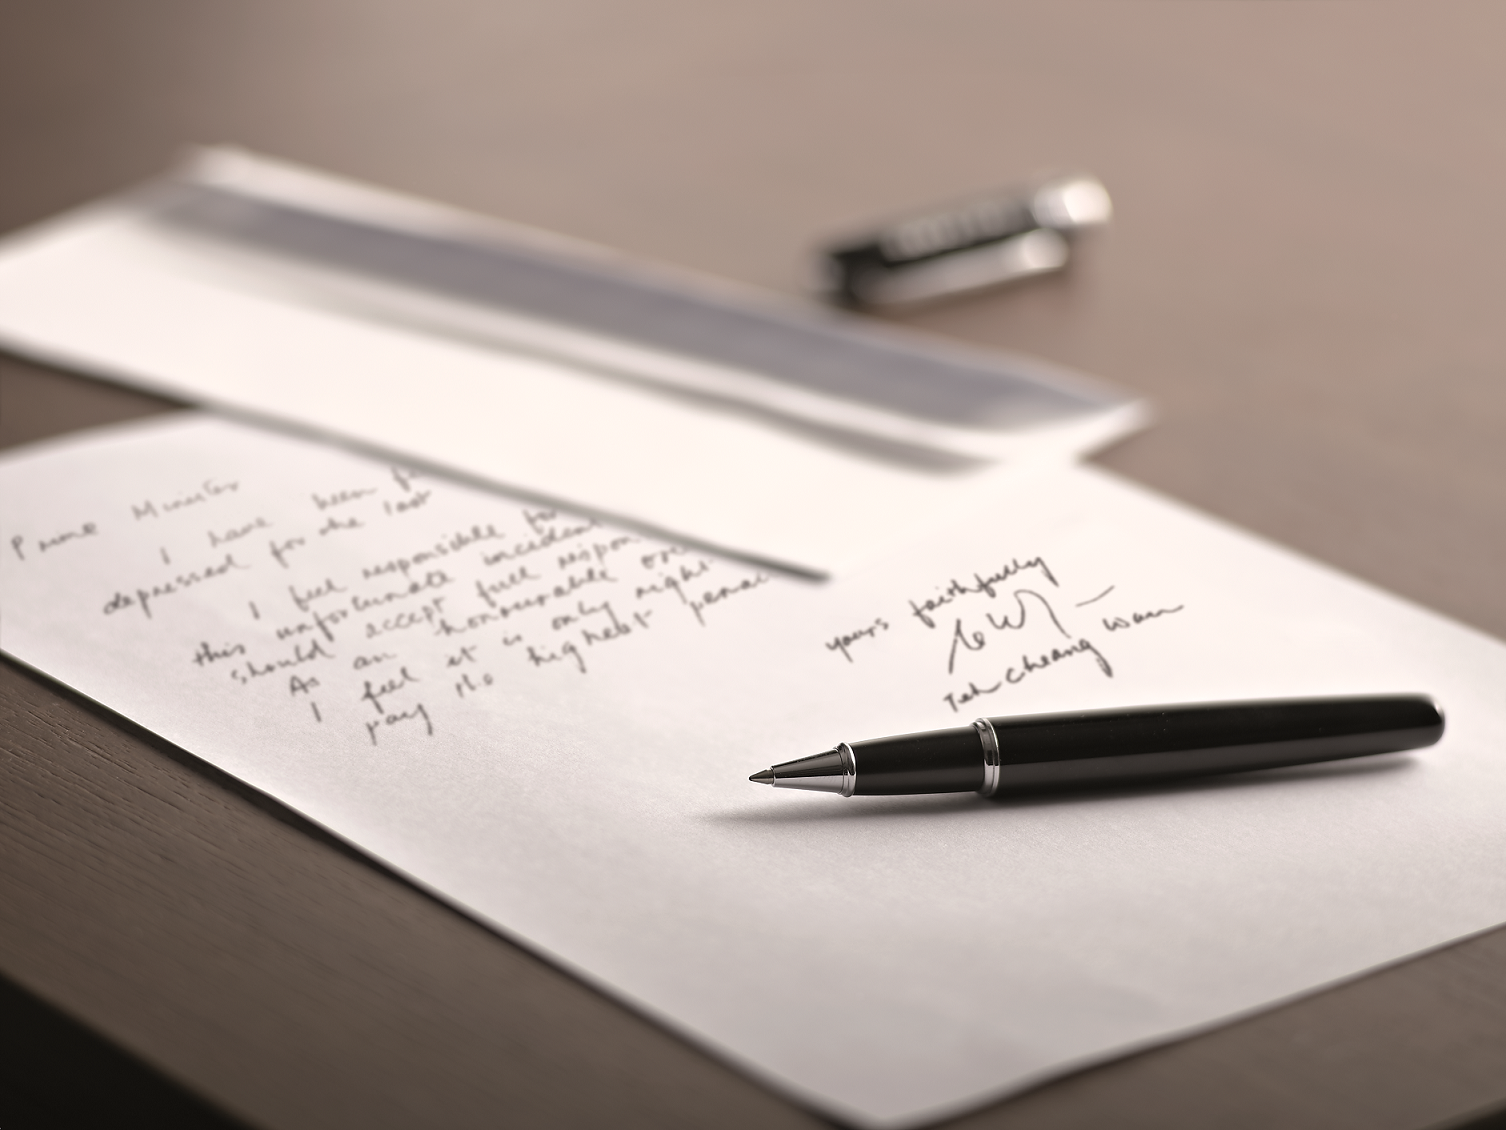 Prime Minister
I have been
depressed for the last
I feel responsible for
this unfortunate incident
should accept full respon
As an honourable
I feel it is only right
pay the highest penal
yours faithfully
Teh Cheang Wan